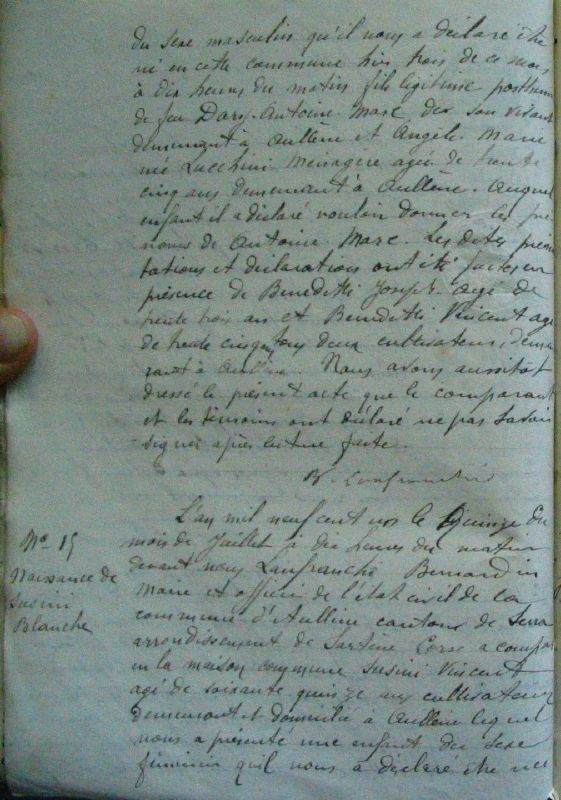 du sexe masculin qu'il nous a déclaré être
né en cette commune hier trois de ce mois
à dix heures du matin fils légitime posthume
de feu Dary Antoine Marc de son vivant
demeurant à Aullène et Angèle Marie
née Lucchini ménagère agée de trente
cinq ans demeurant à Aullène. Auquel
enfant il a déclaré vouloir donner les pré
noms de Antoine Marc. Les dites présen
tations et déclarations ont été faites en
présence de Benedetti Joseph agé de
trente trois ans et Benedetti Vincent agé
de trente cinq tous deux cultivateurs, demeu
rant à Aullène. Nous avons aussitôt
dressé le présent acte que le comparant
et les témoins ont déclaré ne pas savoir
signer après lecture faite.
B. Lanfranchi
N° 15
Naissance de
Susini
Blanche
L'an mil neuf cent le quinze du
mois de Juillet à dix heures du matin
devant nous Lanfranchi Bernardin
Maire et officier de l'état civil de la
commune d'Aullène canton de Serra
arrondissement de Sartène Corse a compar
en la maison commune Susini Vincent
agé de soixante quinze ans cultivateur
demeurant et domicilié à Aullène lequel
nous a présenté une enfant du sexe
féminin qu'il nous a déclaré être née